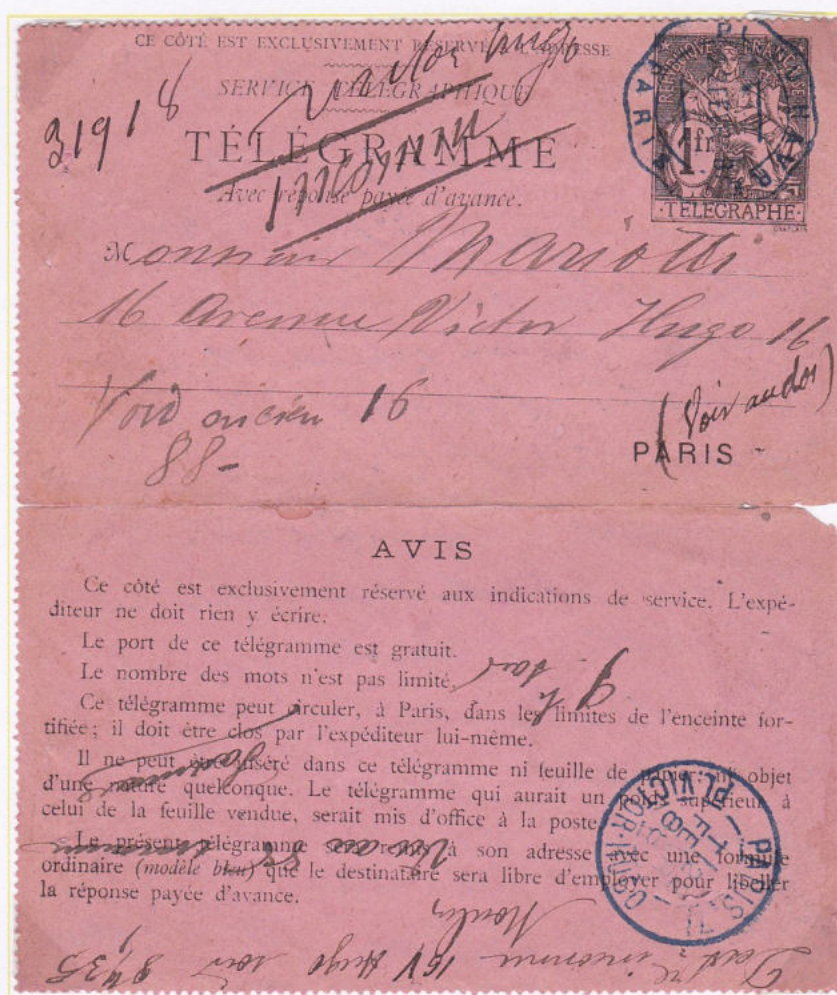 CE CÔTÉ EST EXCLUSIVEMENT RÉSERVÉ A L'ADRESSE
SERVICE TÉLÉGRAPHIQUE
Victor Hugo
31918
TÉLÉGRAMME
inconnu
Avec réponse payée d'avance.
REPUBLIQUE FRANCAISE
1fr
TELEGRAPHE
CHAPLAIN
PARIS PL. DU HAVRE
Monsieur Mariotti
16 Avenue Victor Hugo 16
Voir ancien 16
88-
(Voir au dos)
PARIS
AVIS
Ce côté est exclusivement réservé aux indications de service. L'expé-
diteur ne doit rien y écrire.
Le port de ce télégramme est gratuit.
Le nombre des mots n'est pas limité.
Ce télégramme peut circuler, à Paris, dans les limites de l'enceinte for-
tifiée; il doit être clos par l'expéditeur lui-même.
Il ne peut être inséré dans ce télégramme ni feuille de papier, ni objet
d'une nature quelconque. Le télégramme qui aurait un poids supérieur à
celui de la feuille vendue, serait mis d'office à la poste.
Le présent télégramme sera remis à son adresse avec une formule
ordinaire (modèle bleu) que le destinataire sera libre d'employer pour libeller
la réponse payée d'avance.
PARIS
PL. VICTOR HUGO
FEVR
inconnu 16 V Hugo